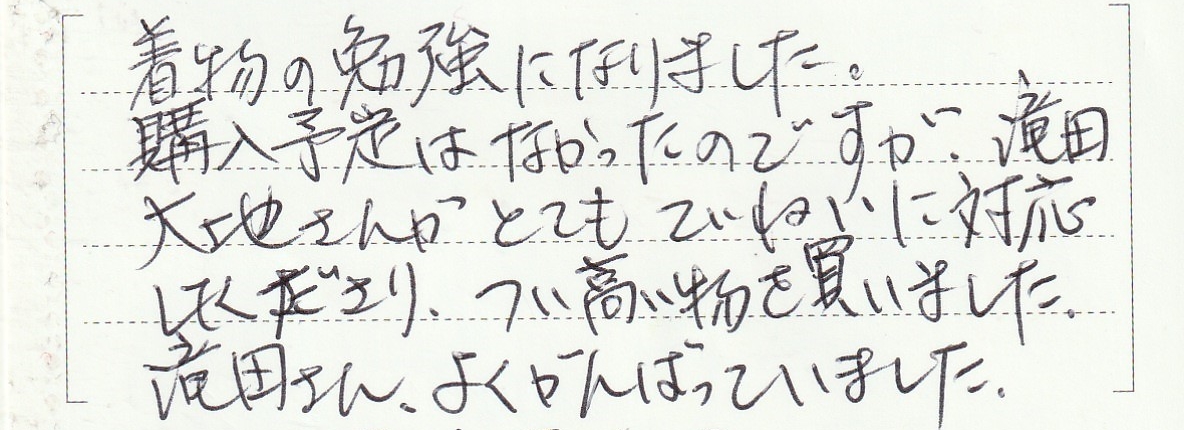 着物の勉強になりました。
購入予定はなかったのですが、滝田
大地さんがとてもていねいに対応
してくださり、つい高い物を買いました。
滝田さん、よくがんばっていました。